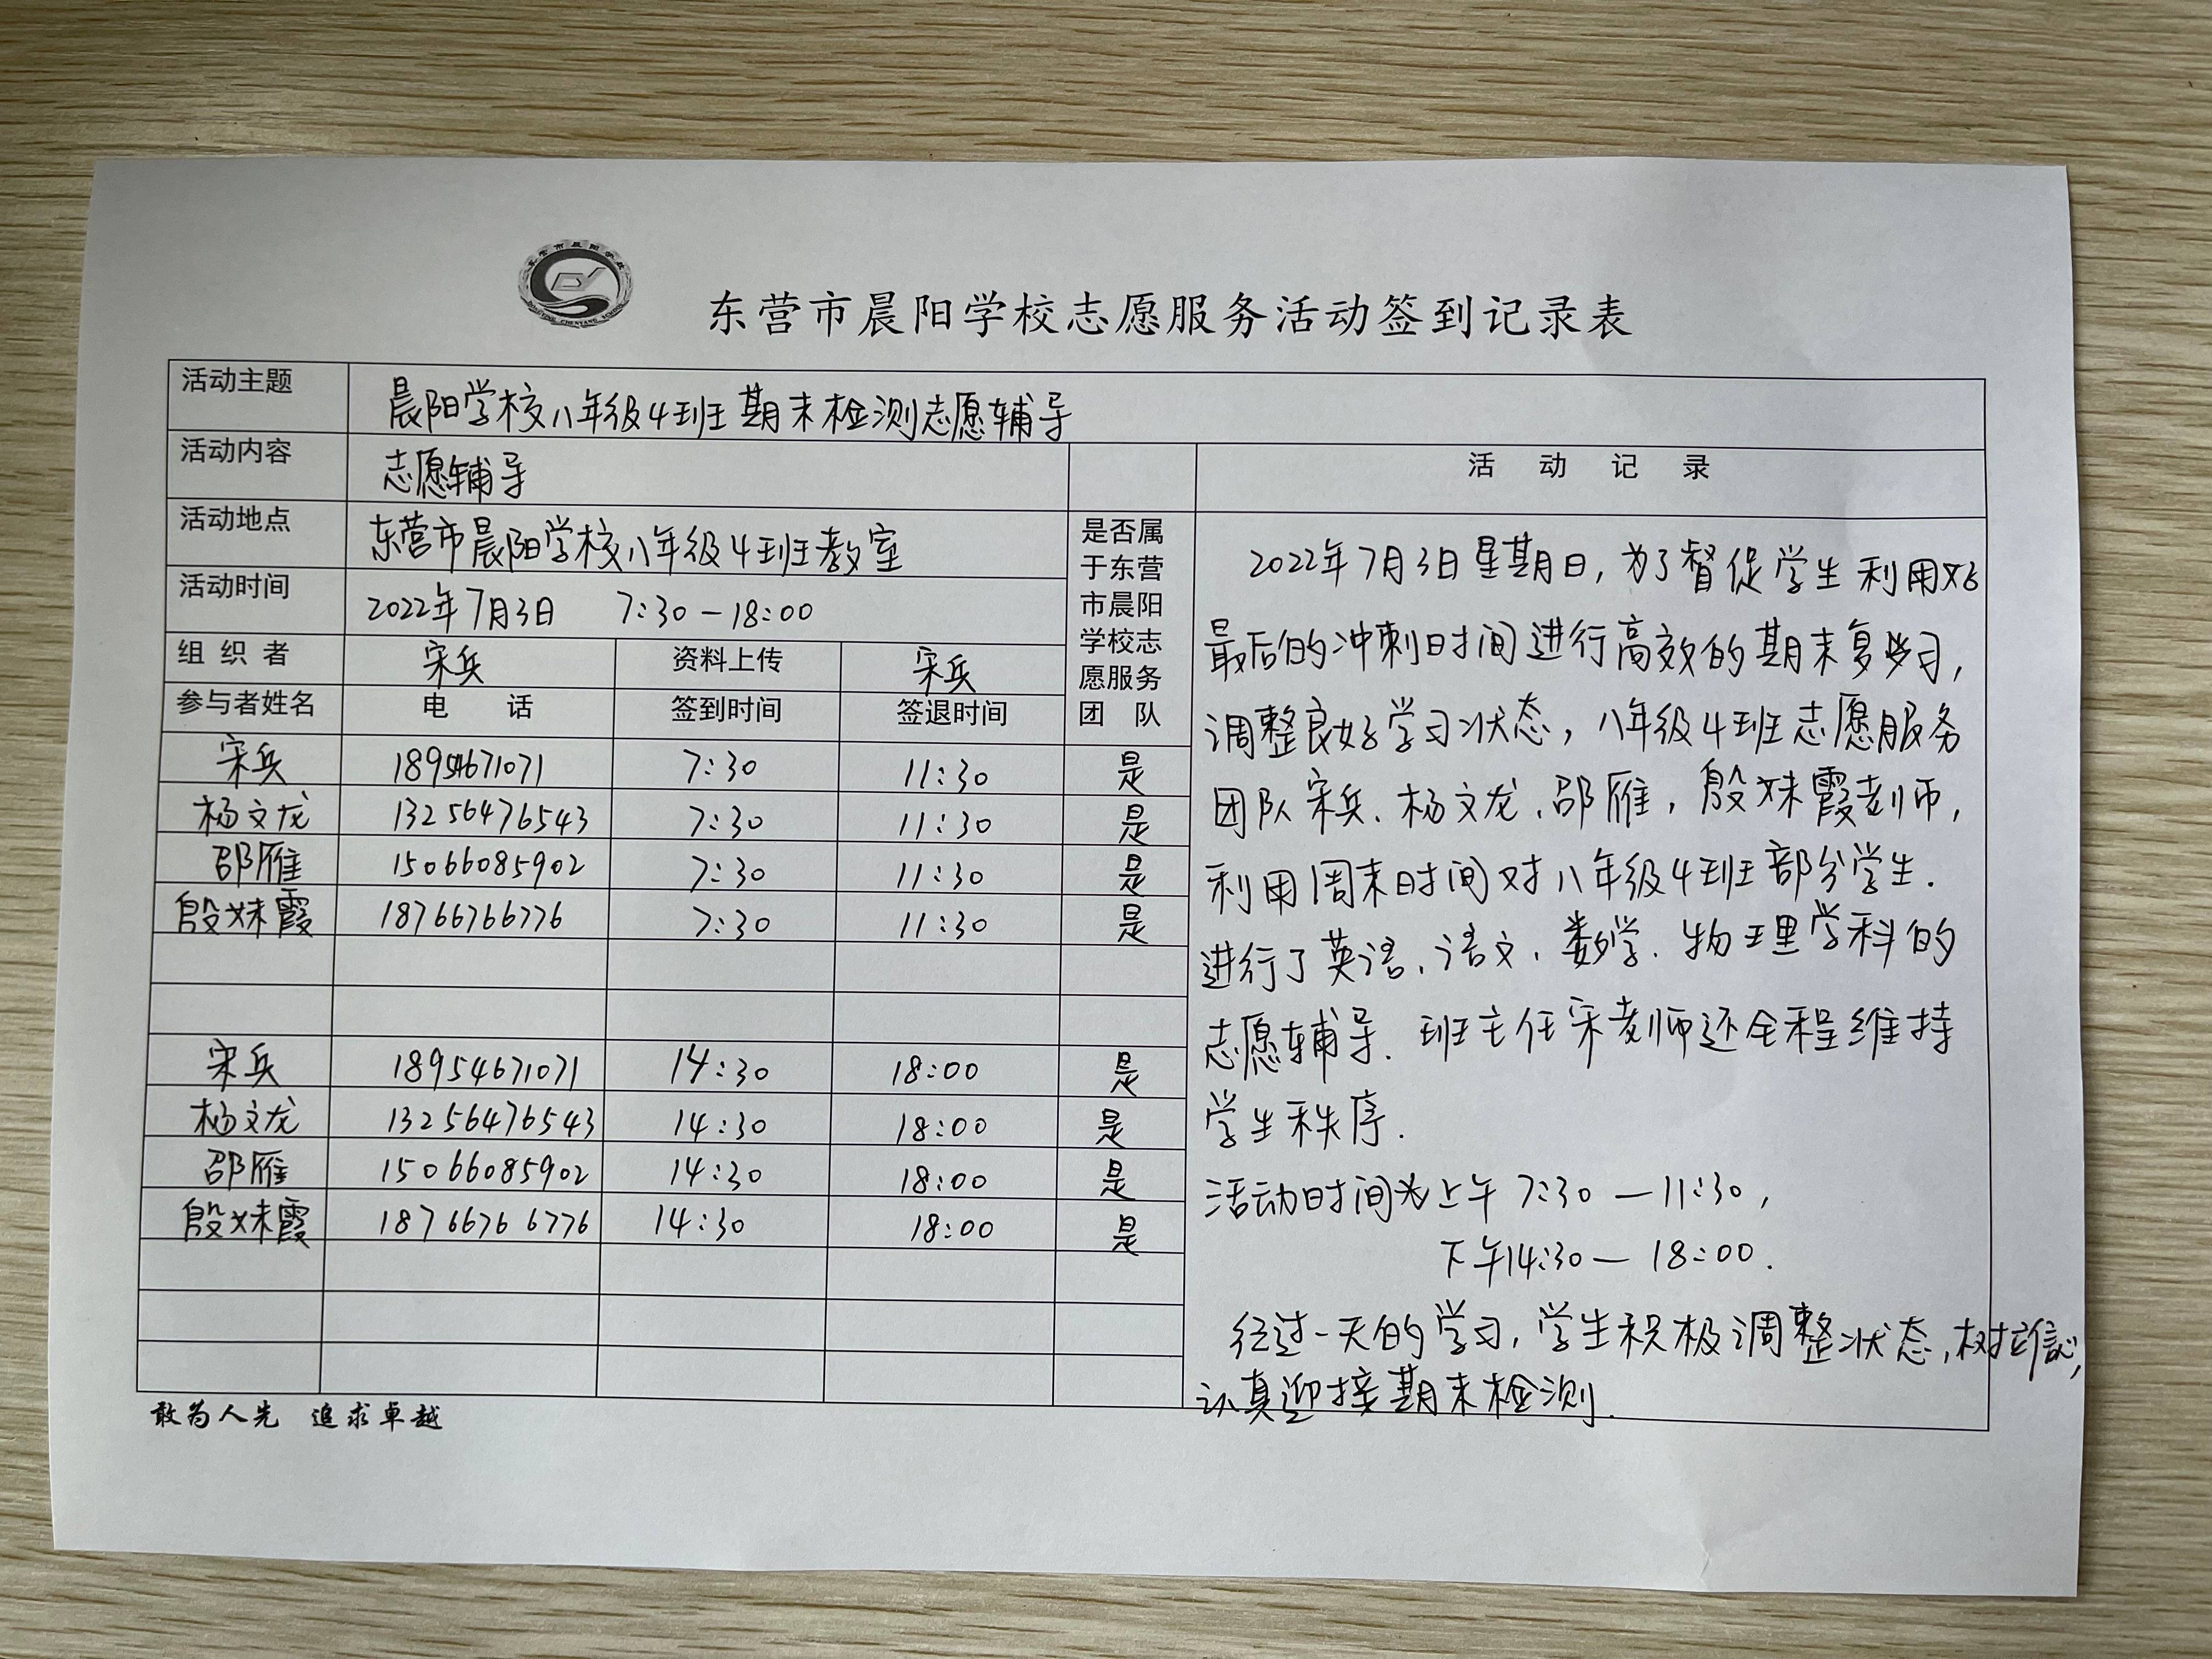 东营市晨阳学校志愿服务活动签到记录表
活动主题 晨阳学校八年级4班期末检测志愿辅导
活动内容 志愿辅导
活动地点 东营市晨阳学校八年级4班教室
活动时间 2022年7月3日 7:30-18:00
组织者 宋兵 资料上传 宋兵
参与者姓名 电话 签到时间 签退时间
是否属
于东营
市晨阳
学校志
愿服务
团队
宋兵 18954671071 7:30 11:30 是
杨文龙 13256476543 7:30 11:30 是
邵雁 15066085902 7:30 11:30 是
殷妹霞 18766766776 7:30 11:30 是
宋兵 18954671071 14:30 18:00 是
杨文龙 13256476543 14:30 18:00 是
邵雁 15066085902 14:30 18:00 是
殷妹霞 18766766776 14:30 18:00 是
活动记录
2022年7月3日星期日,为了督促学生利用好
最后的冲刺时间进行高效的期末复习,
调整良好学习状态,八年级4班志愿服务
团队宋兵、杨文龙、邵雁,殷妹霞老师,
利用周末时间对八年级4班部分学生.
进行了英语、语文、数学、物理学科的
志愿辅导.班主任宋老师还全程维持
学生秩序.
活动时间为上午7:30—11:30,
下午14:30—18:00.
经过一天的学习,学生积极调整状态,树立信心,
认真迎接期末检测.
敢为人先 追求卓越